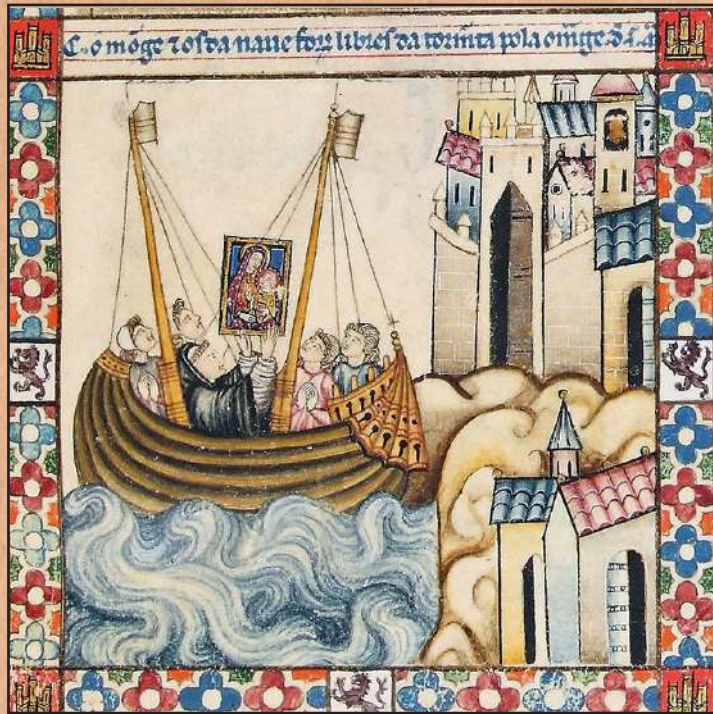 C. o mõge τ os da naue forõ libres da tormẽta pola omagẽ. d. s. m̃